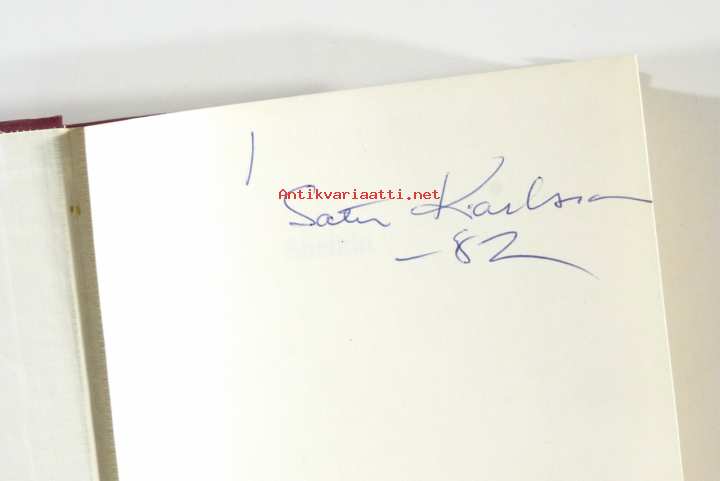 Antikvariaatti.net
Satu Karlsson
-82